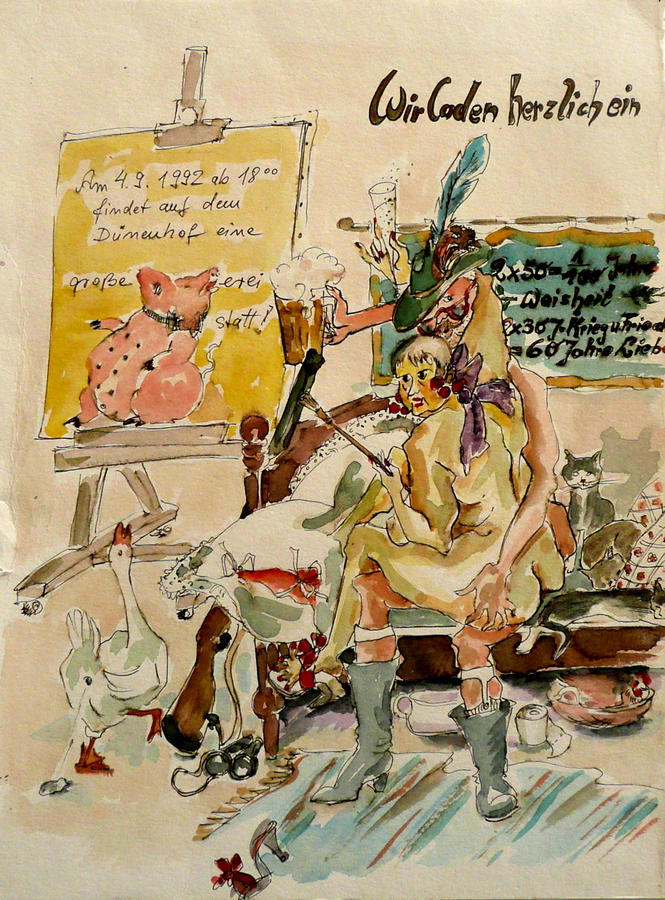 Wir Laden herzlich ein
Am 4.9. 1992 ab 18⁰⁰
findet auf dem
Dünenhof eine
große erei
statt!
2x50=1/100 Jahre
Weisheit
2x30 J. Krieg u Fried
=60 Jahre Liebe